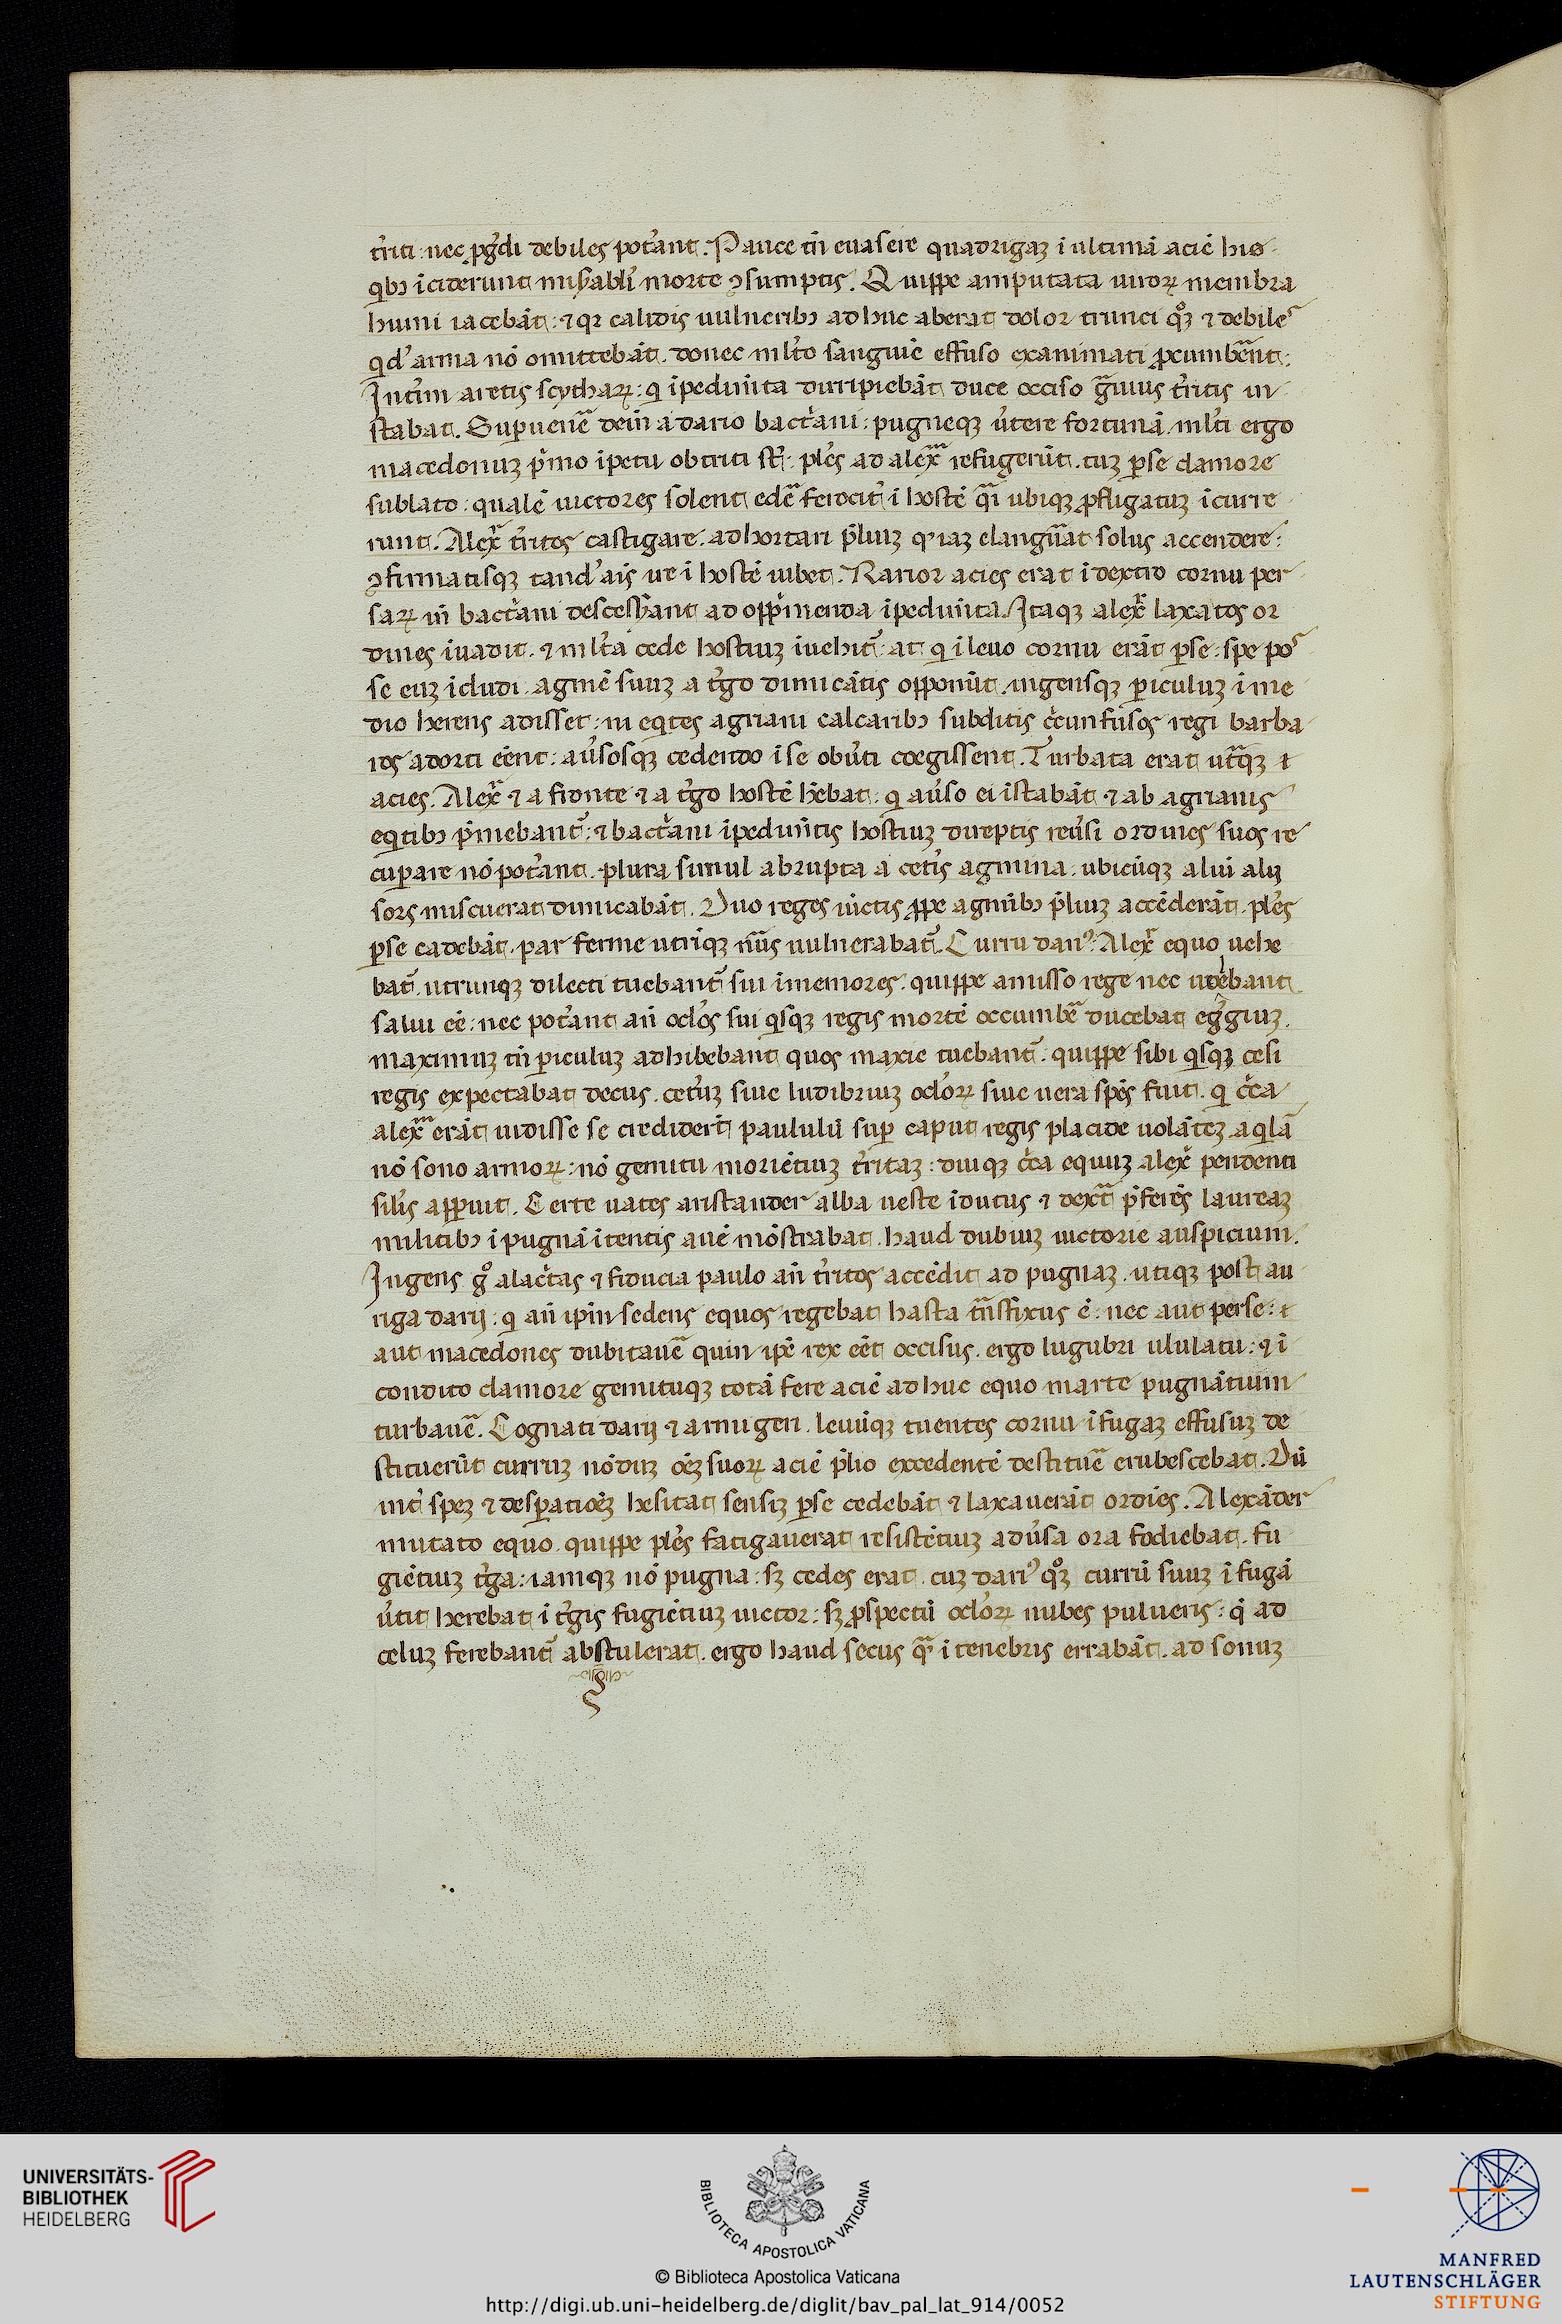 t̾riti: nec ꝓg̾di debiles pot̾ant. Pauce tn̄ euasere quadrigaꝫ i ultimā aciē hiis
qbꝫ iciderunt mis̾abli morte ꝯsumptis. Quippe amputata uiroꝝ membra
humi iacebāt: ⁊ qꝛ calidis uulneribꝫ adhuc aberat dolor trunci qͦꝫ ⁊ debiles
qd' arma nō omittebāt. donec ml̾to sanguīe effuso exanimati ꝓcumbēnt:
Int̾im aretis scythaꝝ: q ipedim̄ta durripiebāt duce occiso gͣuius t̾ritis in
stabat. Supuenēͣ dein̄ a dario bact̾ani: pugneqꝫ u̾tere fortunā. ml̾ti ergo
macedonuꝫ p̾mo ipetu obtriti st̄: pl̾es ad alexͣ refugerūt. tuꝫ ꝑse clamore
sublato: qualē uictores solent edēͣ ferocit̾ i hostē qͣi ubiqꝫ ꝓfligatuꝫ icurre
runt. Alexͬ t̾ritos castigare. adhortari p̄liuꝫ qͥ iaꝫ elangūͣat solus accendere:
ꝯfirmatisqꝫ tand' ais̄ ire i hostē iubet. Rarior acies erat i dextro cornu per
saꝝ in̄ bact̾ani descess̾ant ad opp̾menda ipedim̄ta. Itaqꝫ alexͬ laxatos or
dines iuadit. ⁊ ml̾ta cede hostiuꝫ iuehit̾: at q i leuo cornu erāt ꝑse: spe pos
se euꝫ icludi. agmē suuꝫ a t̾go dimicātis opponūt. ingensqꝫ ꝑiculuꝫ i me
dio herens adisset: ni eqtes agriani calcaribꝫ subditis c̾cunfusos regi barba
ros adorti eēnt: au̾sosqꝫ cedendo i se obu̾ti coegissent. Turbata erat utͣqꝫ
acies. Alexͬ ⁊ a fronte ⁊ a t̾go hostē hēbat: q au̾so ei istabāt ⁊ ab agrianis
eqtibꝫ p̾mebant̾: ⁊ bact̾ani ipedim̄tis hostiuꝫ direptis reu̾si ordines suos re
cuꝑare nō pot̾ant. plura simul abrupta a cet̾is agmina. ubicūqꝫ aliū alij
sors miscuerat dimicabāt. Duo reges iūctis ꝓpe agmībꝫ p̄liuꝫ accēderāt. pl̾es
ꝑse cadebāt. par ferme utriqꝫ nūs uulnerabat̾. Curru dariꝰ. Alexͬ equo uehe
bat̾. utrunqꝫ dilecti tuebant̾ sui imemores. quippe amisso rege nec uolebant
salui eē: nec pot̾ant an̄ ocl̾os sui qsqꝫ regis mortē occumbēͣ ducebat egͬgiuꝫ.
maximuꝫ tn̄ ꝑiculuꝫ adhibebant quos maxīe tuebant̾. quippe sibi qsqꝫ cesi
regis expectabat decus. cet̾uꝫ siue ludibriuꝫ ocl̾oꝝ siue uera spēs fuit. q c̾ca
alexͬ erāt uidisse se crediderūt paululū suꝑ caput regis placide uolāteꝫ aqlā
nō sono armoꝝ: nō gemitu moriētiuꝫ t̾ritaꝫ: diuqꝫ c̾ca equuꝫ alexͬ pendenti
sil̾is apꝑuit. Certe uates aristander alba ueste idutus ⁊ dextͣ p̄ferēs laureaꝫ
militibꝫ i pugnā itentis auē mōstrabat. haud dubiuꝫ uictorie auspicium.
Ingens gͦ alac̾tas ⁊ fiducia paulo an̄ t̾ritos accēdit ad pugnaꝫ. utiqꝫ post au
riga darij: q an̄ ipm̄ sedens equos regebat hasta tn̄sfixus ē: nec aut perse:
aut macedones dubitauēͣ quin ipē rex eēt occisus. ergo lugubri ululatu: ⁊ i
condito clamore gemituqꝫ totā fere aciē adhuc equo marte pugnātium
turbauēͣ. Cognati darij ⁊ armigeri. leuūqꝫ tuentes cornu i fugaꝫ effusuꝫ de
stituerūt curruꝫ nōduꝫ oēꝫ suoꝝ aciē p̄lio excedentē destituēͣ erubescebat. Dū
int̾ speꝫ ⁊ desꝑatioēꝫ hesitat sensiꝫ ꝑse cedebāt ⁊ laxauerāt ordīes. Alexāder
mutato equo. quippe pl̾es fatigauerat resistētiuꝫ adu̾sa ora fodiebat. fu
giētiuꝫ t̾ga: iamqꝫ nō pugna: sꝫ cedes erat. cuꝫ dariꝰ qͦꝫ currū suuꝫ i fugā
u̾tit herebat i t̾gis fugiētiuꝫ uictor: sꝫ ꝓspectū ocl̾oꝝ nubes pulueris: q̄ ad
celuꝫ ferebant̾ abstulerat. ergo haud secus qͣ i tenebris errabāt. ad sonuꝫ
UNIVERSITÄTS-
BIBLIOTHEK
HEIDELBERG
BIBLIOTECA APOSTOLICA VATICANA
© Biblioteca Apostolica Vaticana
http://digi.ub.uni-heidelberg.de/diglit/bav_pal_lat_914/0052
MANFRED
LAUTENSCHLÄGER
STIFTUNG